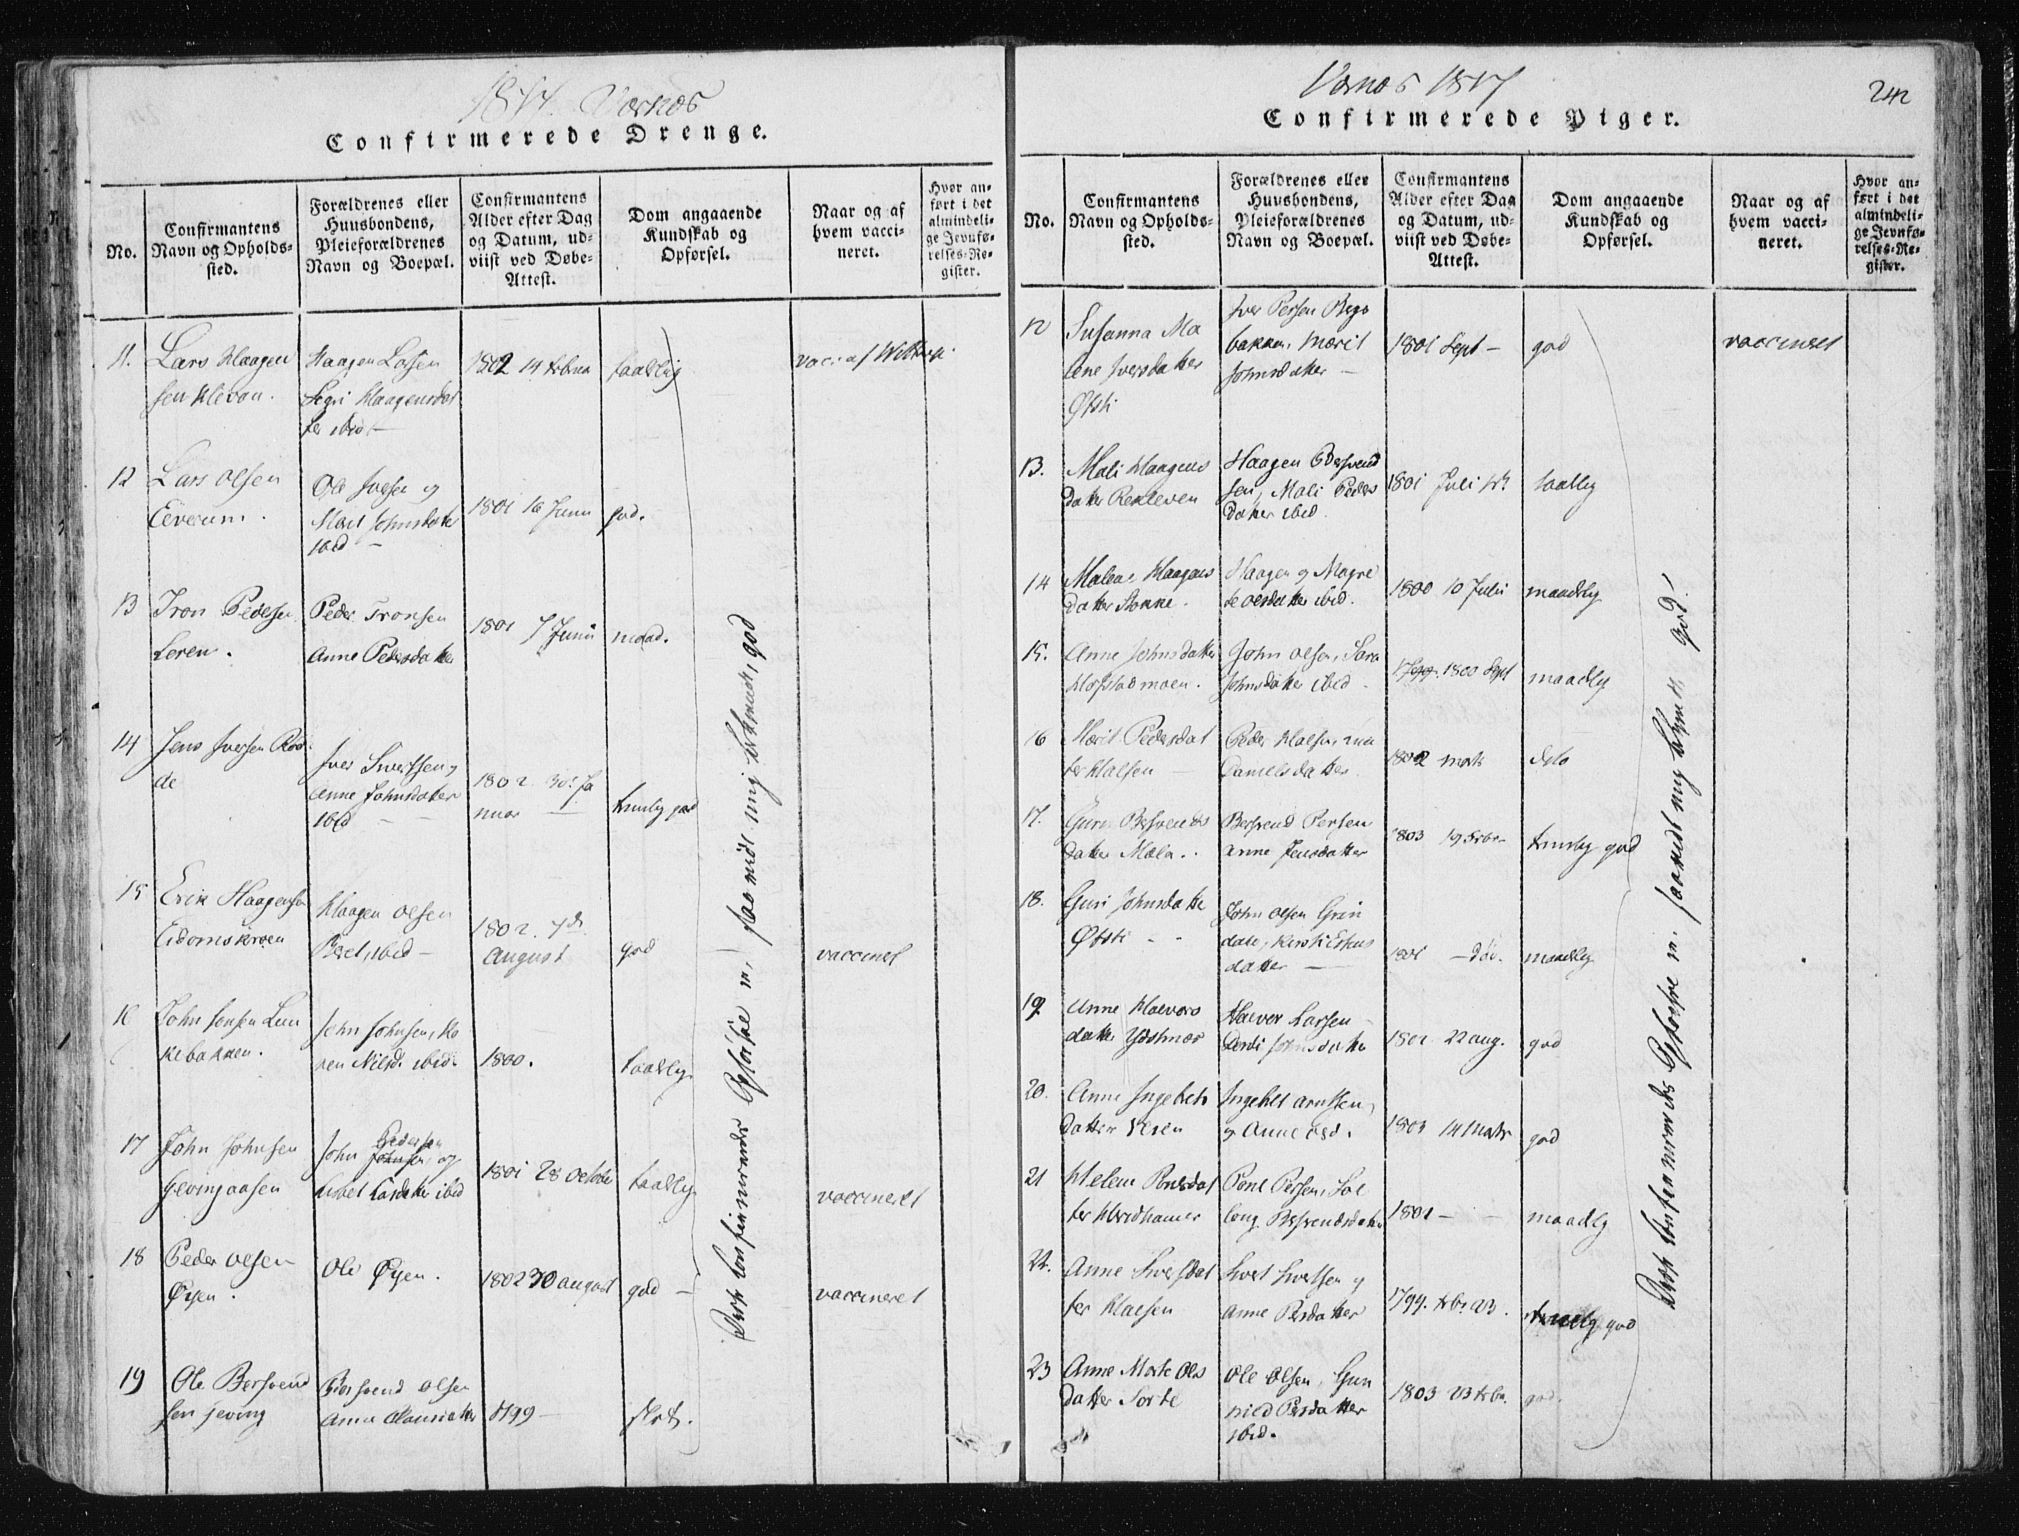 1817. Værnes
Confirmerede Drenge.
No.
Confirmantens
Navn og Opholds-
sted.
Forældrenes eller
Huusbondens,
Pleieforældrenes
Navn og Boepæl.
Confirmantens
Alder efter Dag
og Datum, ud-
viist ved Døbe-
Attest.
Dom angaaende
Kundskab og
Opførsel.
Naar og af
hvem vacci-
neret.
Hvor an-
ført i det
almindeli-
ge Jevnfø-
relses-Re-
gister.
11.
Lars Haagen
sen Kleven.
Haagen Larsen
Segri Haagensdat
ter ibid
1802
taallig
vacc: af
12
Lars Olsen
Eeverum.
Ole Iversen og
Marit Johnsdatter
ibid
1801 16 Junii
god.
13
Tron Pedersen
Leren.
Peder Tronsen
Anne Pedersdatter
1801 7 Junii
maad.
14
Jens Iversen Roo
de
Iver Sivertsen og
Anne Johnsdatter
ibid
1802. 30t Ja
nuar
temlig god
15
Erik Haagensen
Eidomskroen
Haagen Olsen
Beret, ibid
1802. 7de
August
god
vaccinet
16
John Jonsen Lun
kebakken.
John Johnsen, Ka
ren Nilsd. ibid.
1800.
taallig
17
John Johnsen
Gevingaasen
John Pedersen
Johnsen, og
Lisbet Larsdatter ibid
1801 28 October
taallig
vaccineret
18
Peder Olsen
Øyen.
Ole Øyen.
1802 30 August
god
vaccineret
19
Ole Bersvend
sen Geving
Bersvend Olsen
Anne Olausdatter
1799
slet.
Disse Confirmerede Opførsel er, saavidt mig bekiendt, god
Værnes 1817
242
Confirmerede Piger.
No.
Confirmantens
Navn og Opholds-
sted.
Forældrenes eller
Huusbondens,
Pleieforældrenes
Navn og Boepæl.
Confirmantens
Alder efter Dag
og Datum, ud-
viist ved Døbe-
Attest.
Dom angaaende
Kundskab og
Opførsel.
Naar og af
hvem vacci-
neret.
Hvor an-
ført i det
almindeli-
ge Jevnfø-
relses-Re-
gister.
12
Susanna Ma
lene Iversdatter
Øfsti
Iver Persen Berg
bakken, Marit
Johnsdatter
1801 Sept
god
vaccineret
13.
Mali Haagens
datter Renleven
Haagen Bersvend
sen, Mali Peders
datter ibid
1801 Juli
taallig
14
Malea Haagens
datter Stokke.
Haagen og Magre
te Olsdatter ibid.
1800 10 Julii
maadlig
15.
Anne Johnsdatter
Hofstadmoen.
John Olsen, Sara
Johnsdatter ibid.
1799. 1800 Sept
maadlig
16
Marit Pedersdat
ter Halsen
Peder Halsen,
Danielsdatter
1802 Marts
dito
17.
Guru Bersvends
datter Mæla.
Bersvend Persen
Anne Jensdatter
1803 19
temlig god
18.
Guri Johnsdatter
Øfsti
John Olsen Grin
dale, Kirsti Eskes
datter
1801
maadlig
19
Anne Haavors
datter Ydstines
Haavor Larsen
Johnsdatter
1801 22 Aug.
god
20.
Anne Ingebrets
datter
Ingebret Arntsen,
og Anne ibid.
1801 14 Marts
god
21
Helene Paulsdat
ter
Persen, Sol
laug Bersvendsdatter
1801
maadlig
22.
Anne Sivertsdat
ter Halsen
Sivert Sivertsen og
Anne Persdatter
1799.
temlig god
23
Anne Marte Ols
datter Sorte
Ole Olsen, Gun
nild Persdatter
ibid.
1803 23
god.
Disse Confirmeredes Opførsel er, saavidt mig bekiendt god!